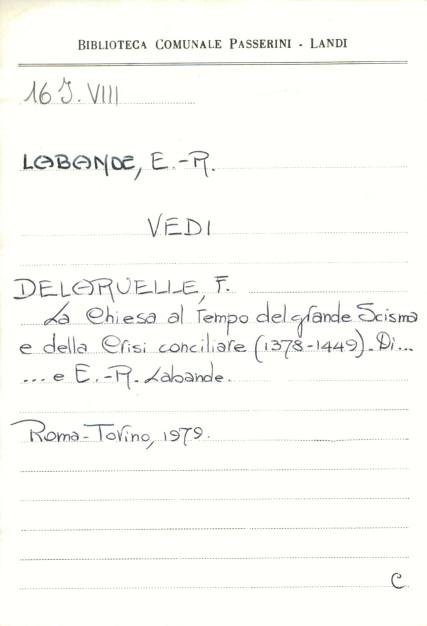 BIBLIOTECA COMUNALE PASSERINI - LANDI
16 J. VIII
LABANDE, E.-R.
VEDI
DELARUELLE, F.
La Chiesa al tempo del grande Scisma
e della Crisi conciliare (1378-1449). Di...
... e E.-R. Labande.
Roma-Torino, 1979.
C